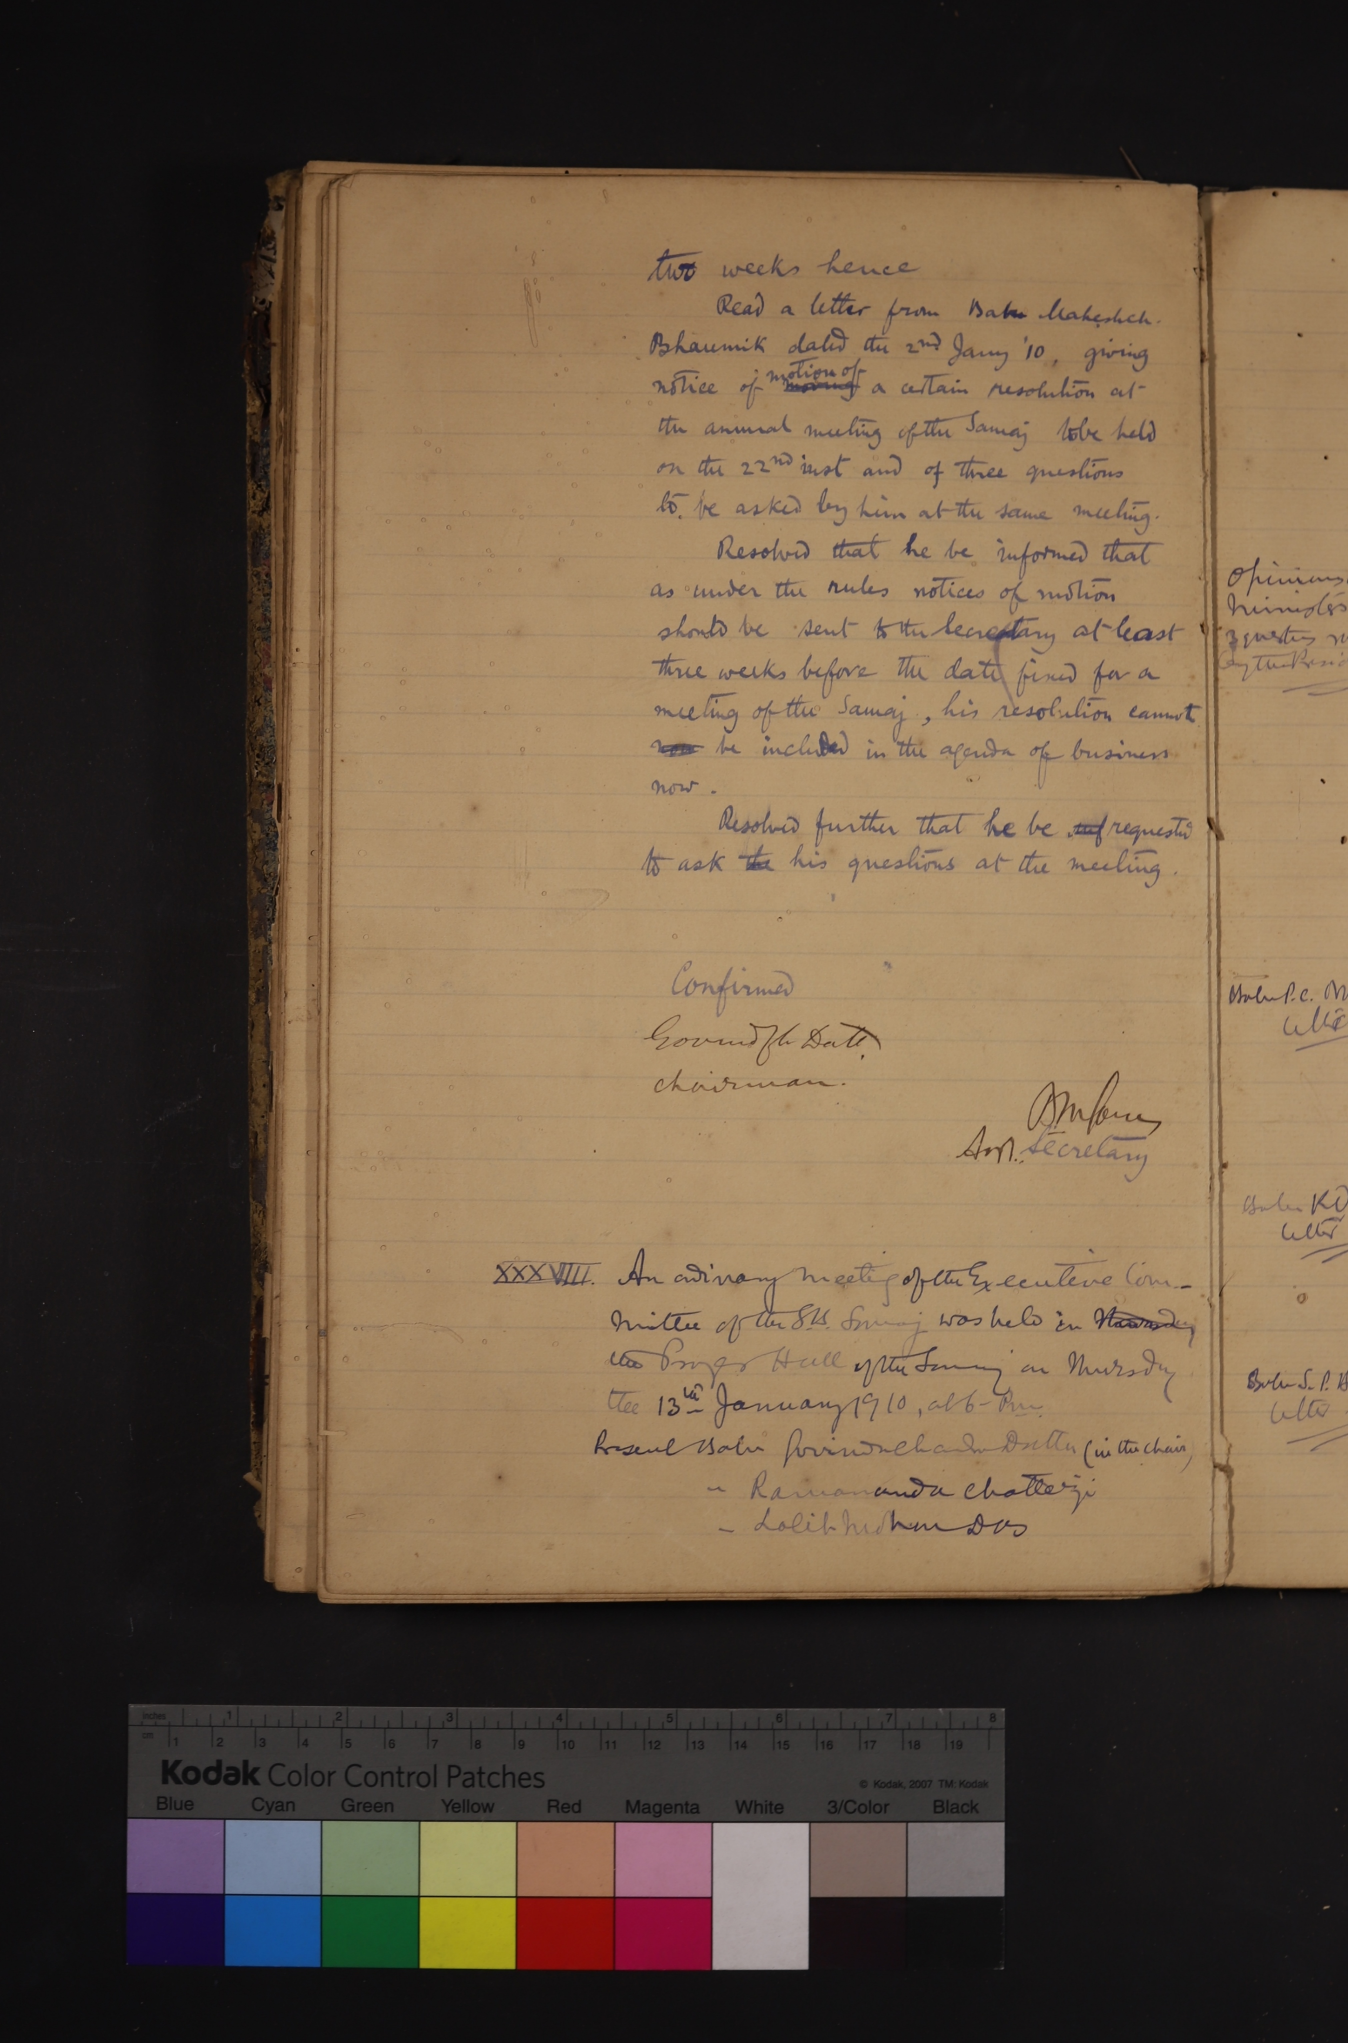 two weeks hence
Read a letter from Babu Maheshch.
Bhaumik dated the 2nd Jany '10, giving
notice of motion of moving a certain resolution at
the annual meeting of the Samaj to be held
on the 22nd inst and of three questions
to be asked by him at the same meeting.
Resolved that he be informed that
as under the rules notices of motion
should be sent to the Secretary at least
three weeks before the date fixed for a
meeting of the Samaj, his resolution cannot
now be included in the agenda of business
now.
Resolved further that he be inf requested
to ask the his questions at the meeting.
Confirmed
Govind Ch Datta
Chairman.
Asst. Secretary
XXXVIII. An ordinary meeting of the Executive Com-
mittee of the S.B. Samaj was held in Thursday
the Prayer Hall of the Samaj on Thursday
the 13th January 1910, at 6- P.m.
Present Babu Govinda Chandra Dutta (in the chair)
" Ramananda Chatterji
" Lalit Mohan Das
Opinions
Ministers
3 questions
by the Presid
Babu P.C. M
letter
Babu K D
letter
Babu S. P.
letter
inches 1 2 3 4 5 6 7 8
cm 1 2 3 4 5 6 7 8 9 10 11 12 13 14 15 16 17 18 19
Kodak Color Control Patches
© Kodak, 2007 TM: Kodak
Blue Cyan Green Yellow Red Magenta White 3/Color Black